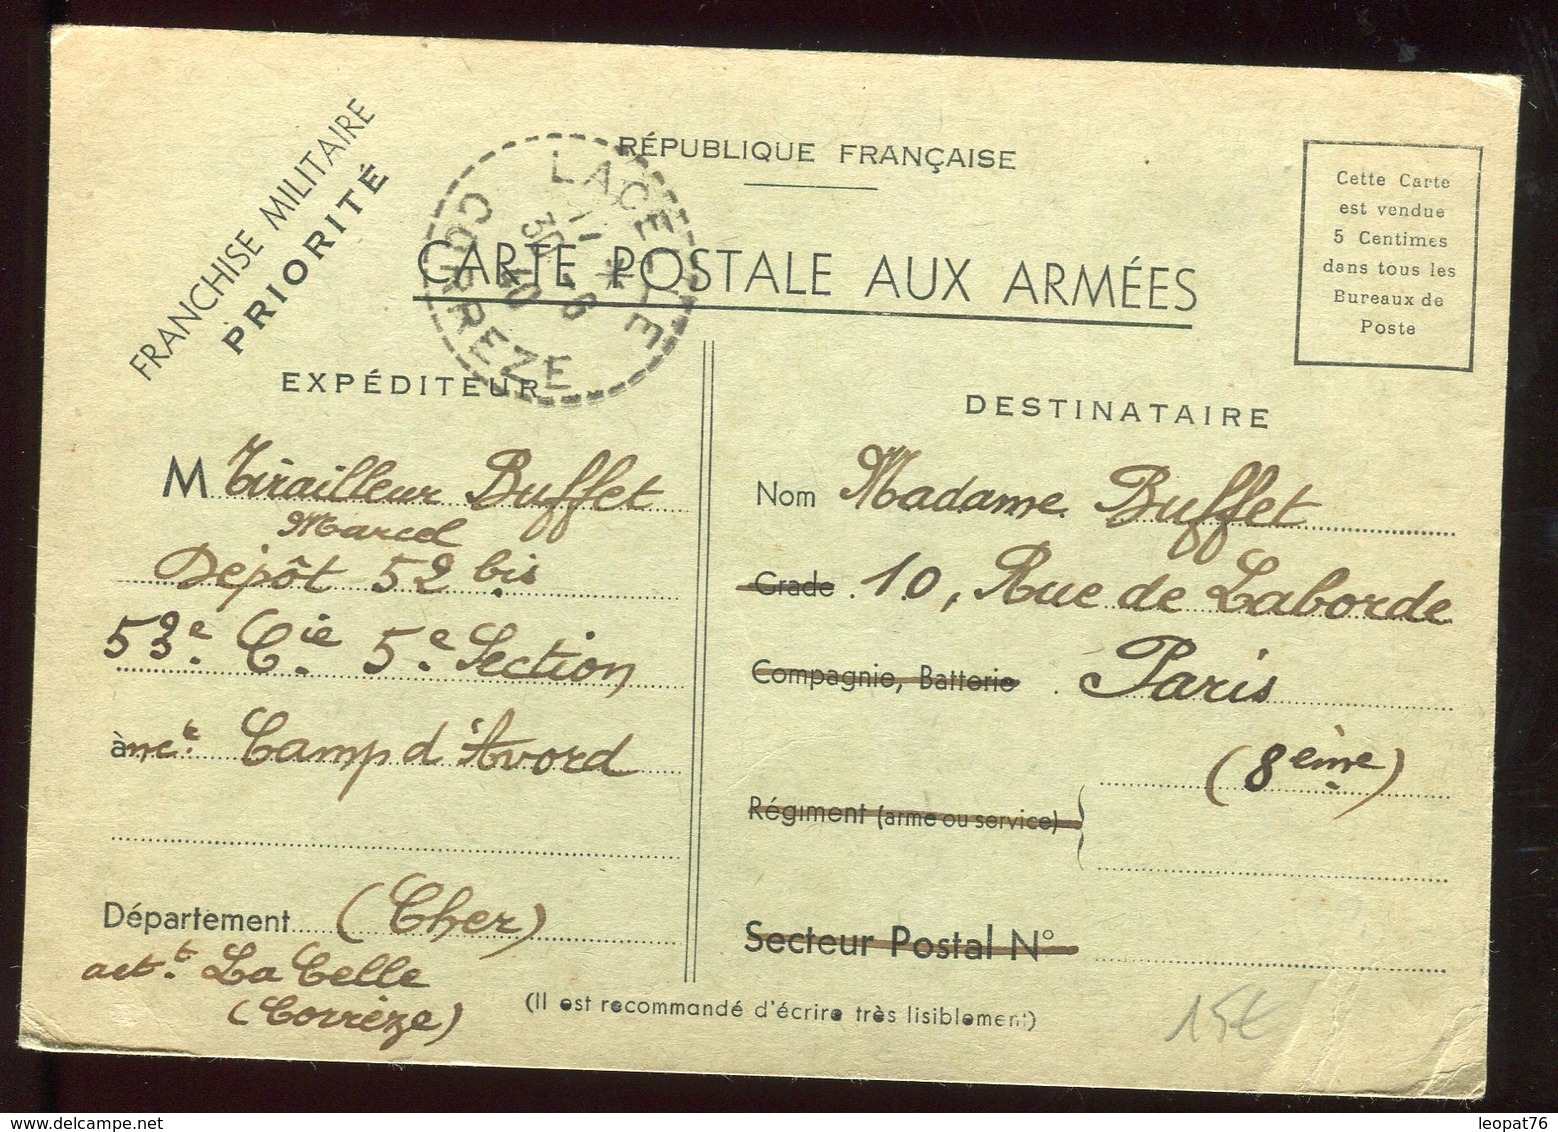 FRANCHISE MILITAIRE
PRIORITÉ
RÉPUBLIQUE FRANÇAISE
CARTE POSTALE AUX ARMÉES
LACELLE
11 *
30 -6
40
CORREZE
Cette Carte
est vendue
5 Centimes
dans tous les
Bureaux de
Poste
EXPÉDITEUR
M Tirailleur Buffet
Marcel
Dépôt 52 bis
53e Cie 5e Section
anct Camp d'Avord
Département (Cher)
actt La Celle
(Corrèze)
DESTINATAIRE
Nom Madame Buffet
Grade 10, Rue de Laborde
Compagnie, Batterie Paris
(8ème)
Régiment (arme ou service)
Secteur Postal N°
(Il est recommandé d'écrire très lisiblement)
15€
leopat76